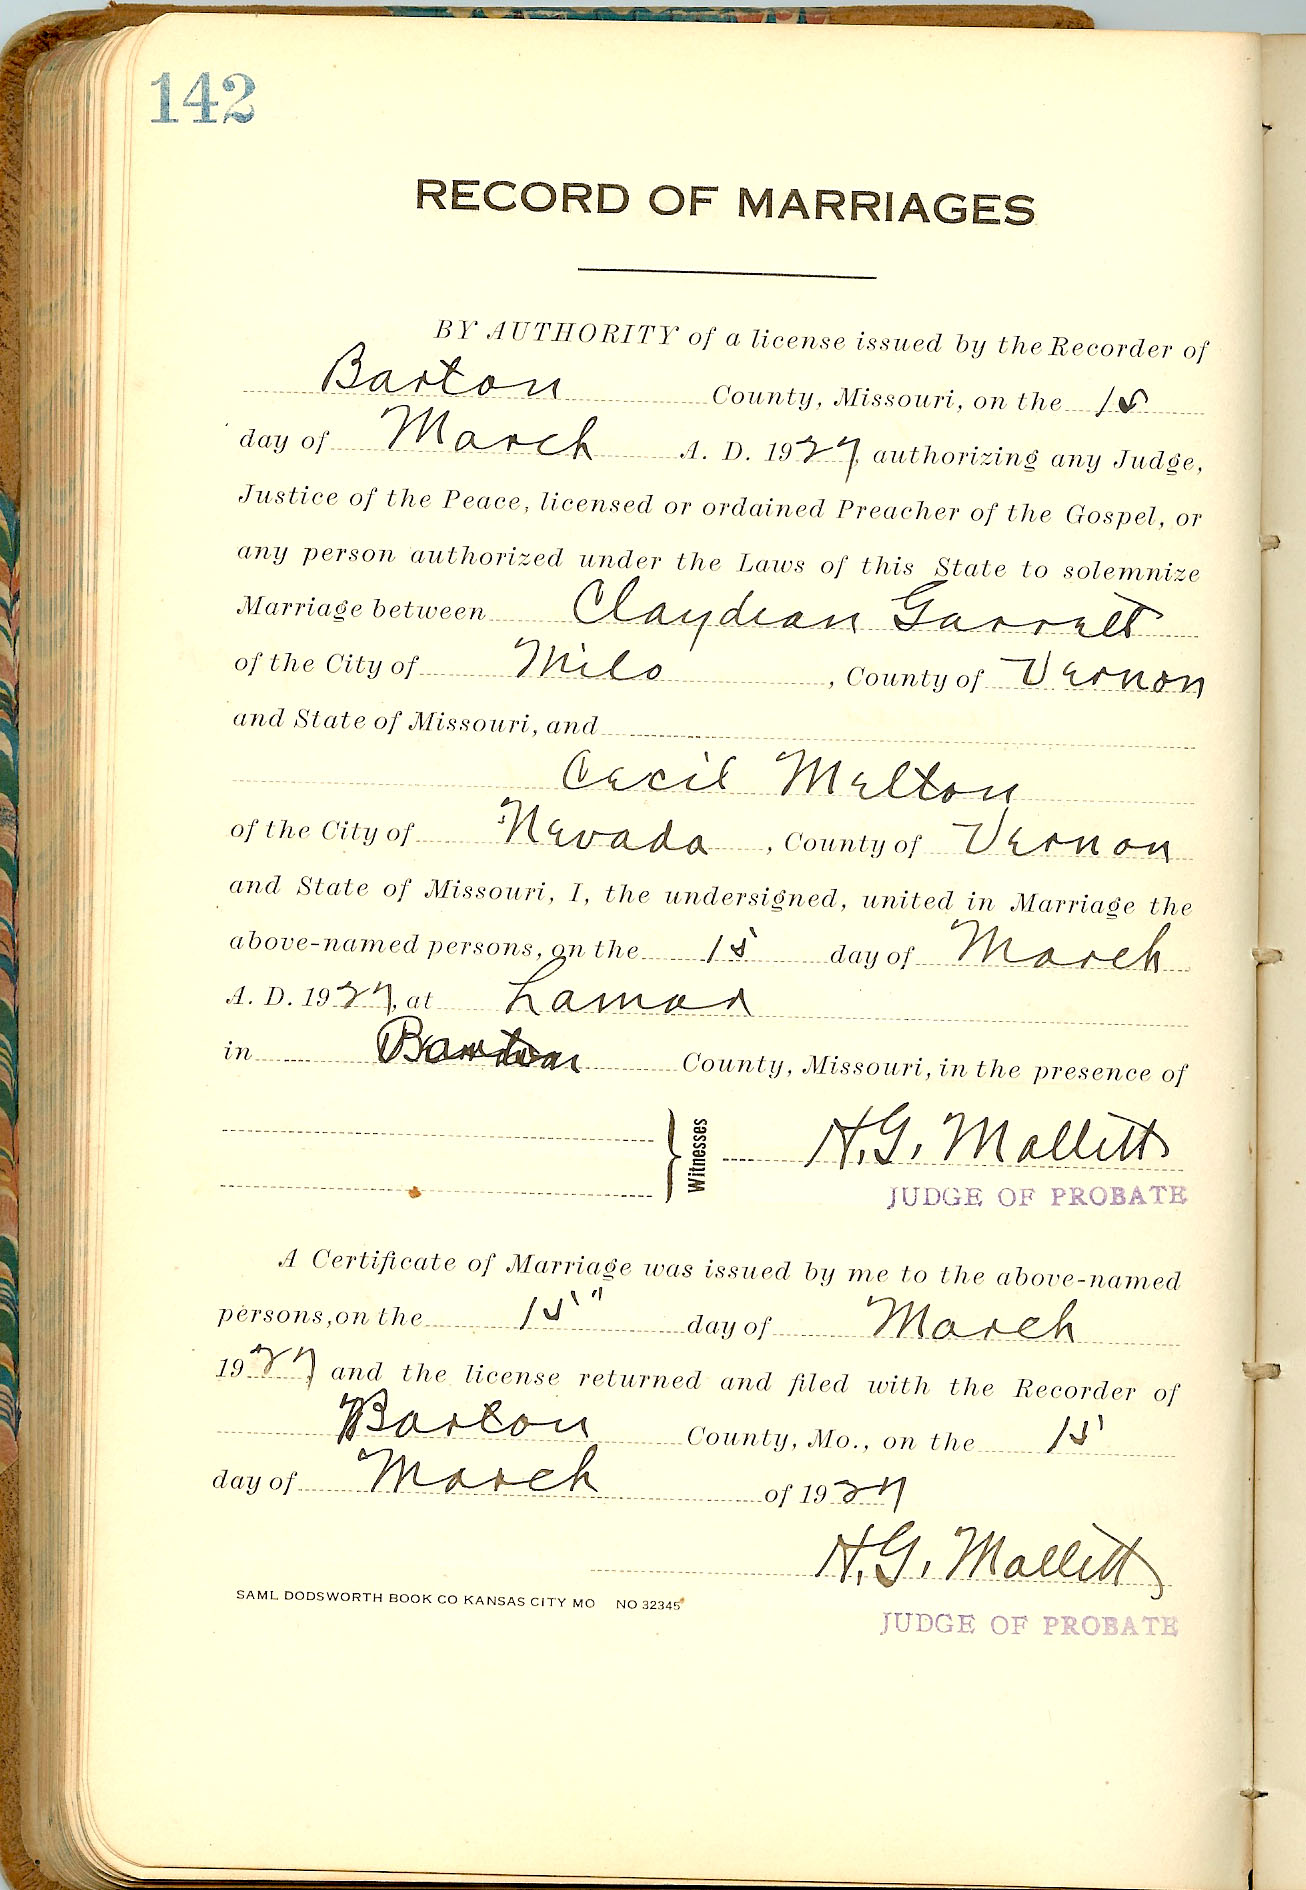 142
RECORD OF MARRIAGES
BY AUTHORITY of a license issued by the Recorder of
Barton County, Missouri, on the 15
day of March A. D. 1927, authorizing any Judge,
Justice of the Peace, licensed or ordained Preacher of the Gospel, or
any person authorized under the Laws of this State to solemnize
Marriage between Claydean Garrett
of the City of Milo, County of Vernon
and State of Missouri, and
Cecil Melton
of the City of Nevada, County of Vernon
and State of Missouri, I, the undersigned, united in Marriage the
above-named persons, on the 15 day of March
A. D. 1927, at Lamar
in Barton County, Missouri, in the presence of
Witnesses H. G. Mallitt
JUDGE OF PROBATE
A Certificate of Marriage was issued by me to the above-named
persons, on the 15" day of March
1927 and the license returned and filed with the Recorder of
Barton County, Mo., on the 15
day of March of 1927
H. G. Mallitt
SAML DODSWORTH BOOK CO KANSAS CITY MO NO 32345
JUDGE OF PROBATE